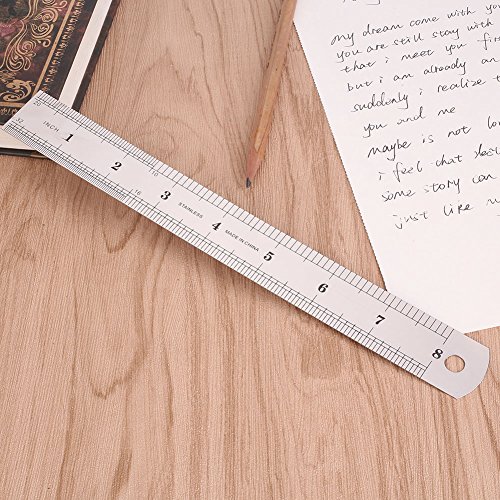 my dream come with you
you are still stay with
that i meet you firs
but i am already an
suddenly i realize
you and me
maybe is not lo
i feel that
some story can
just like m
INCH 1 2 3 4 5 6 7 8
32
10
16
STAINLESS
MADE IN CHINA